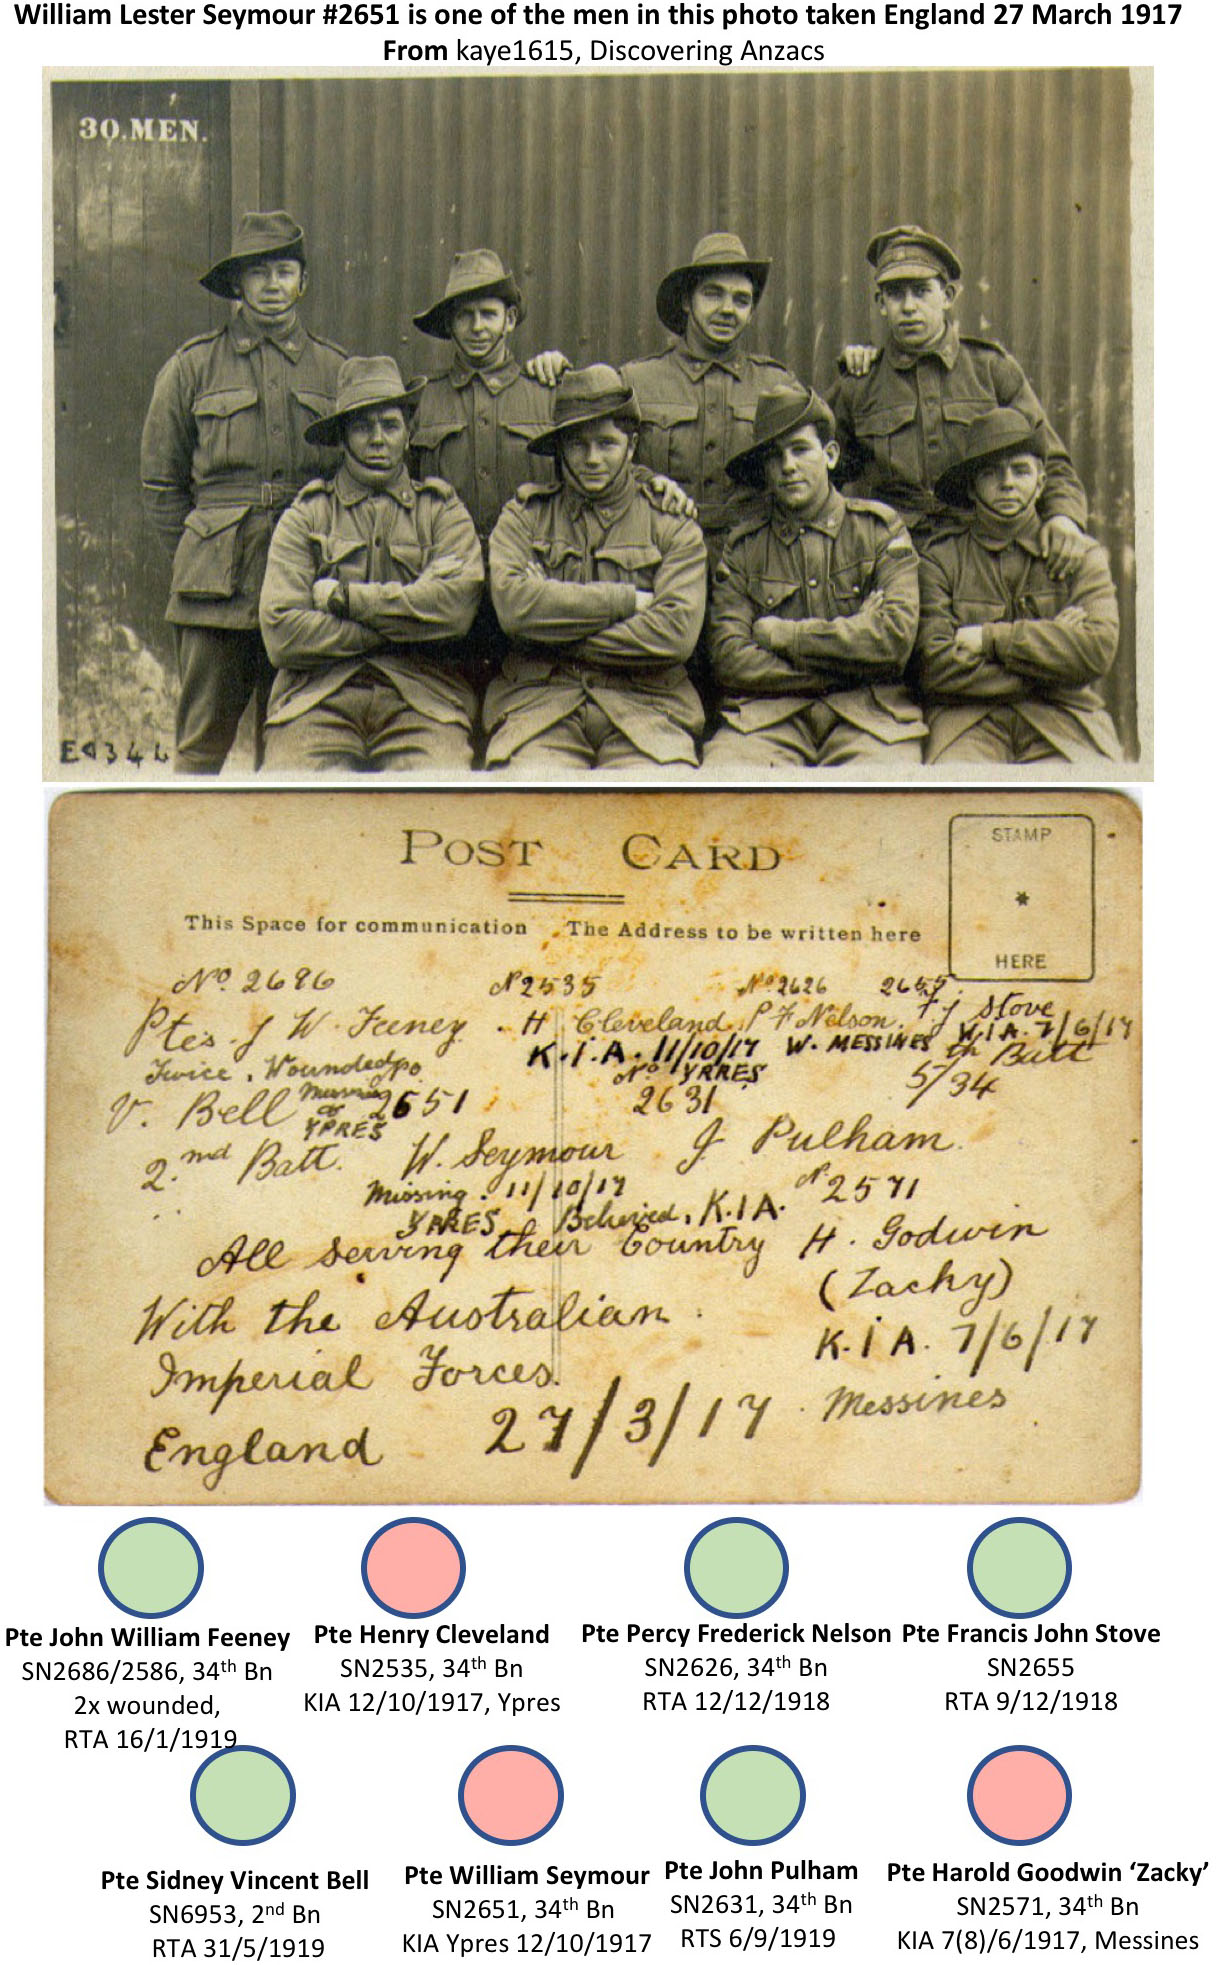 William Lester Seymour #2651 is one of the men in this photo taken England 27 March 1917
From kaye1615, Discovering Anzacs
30.MEN.
POST CARD
STAMP
*
HERE
This Space for communication
The Address to be written here
No. 2686
No 2535
No. 2626
2655
Ptes. J W. Feeney. H Cleveland. P F Nelson. F J Stove
K.I.A. 11/10/17 W. MESSINES W.I.A. 7/6/17
Twice. Wounded
No YPRES
5/34 th Batt
V. Bell Missing
2651
2631
YPRES
2.nd Batt. W. Seymour J Pulham.
Missing. 11/10/17
No 2571
YPRES Believed. K.I.A.
All serving their Country H. Godwin
(Zacky)
With the Australian.
K.I A. 7/6/17
Imperial Forces.
Messines
England 27/3/17
Pte John William Feeney
SN2686/2586, 34th Bn
2x wounded,
RTA 16/1/1919
Pte Henry Cleveland
SN2535, 34th Bn
KIA 12/10/1917, Ypres
Pte Percy Frederick Nelson
SN2626, 34th Bn
RTA 12/12/1918
Pte Francis John Stove
SN2655
RTA 9/12/1918
Pte Sidney Vincent Bell
SN6953, 2nd Bn
RTA 31/5/1919
Pte William Seymour
SN2651, 34th Bn
KIA Ypres 12/10/1917
Pte John Pulham
SN2631, 34th Bn
RTS 6/9/1919
Pte Harold Goodwin ‘Zacky’
SN2571, 34th Bn
KIA 7(8)/6/1917, Messines